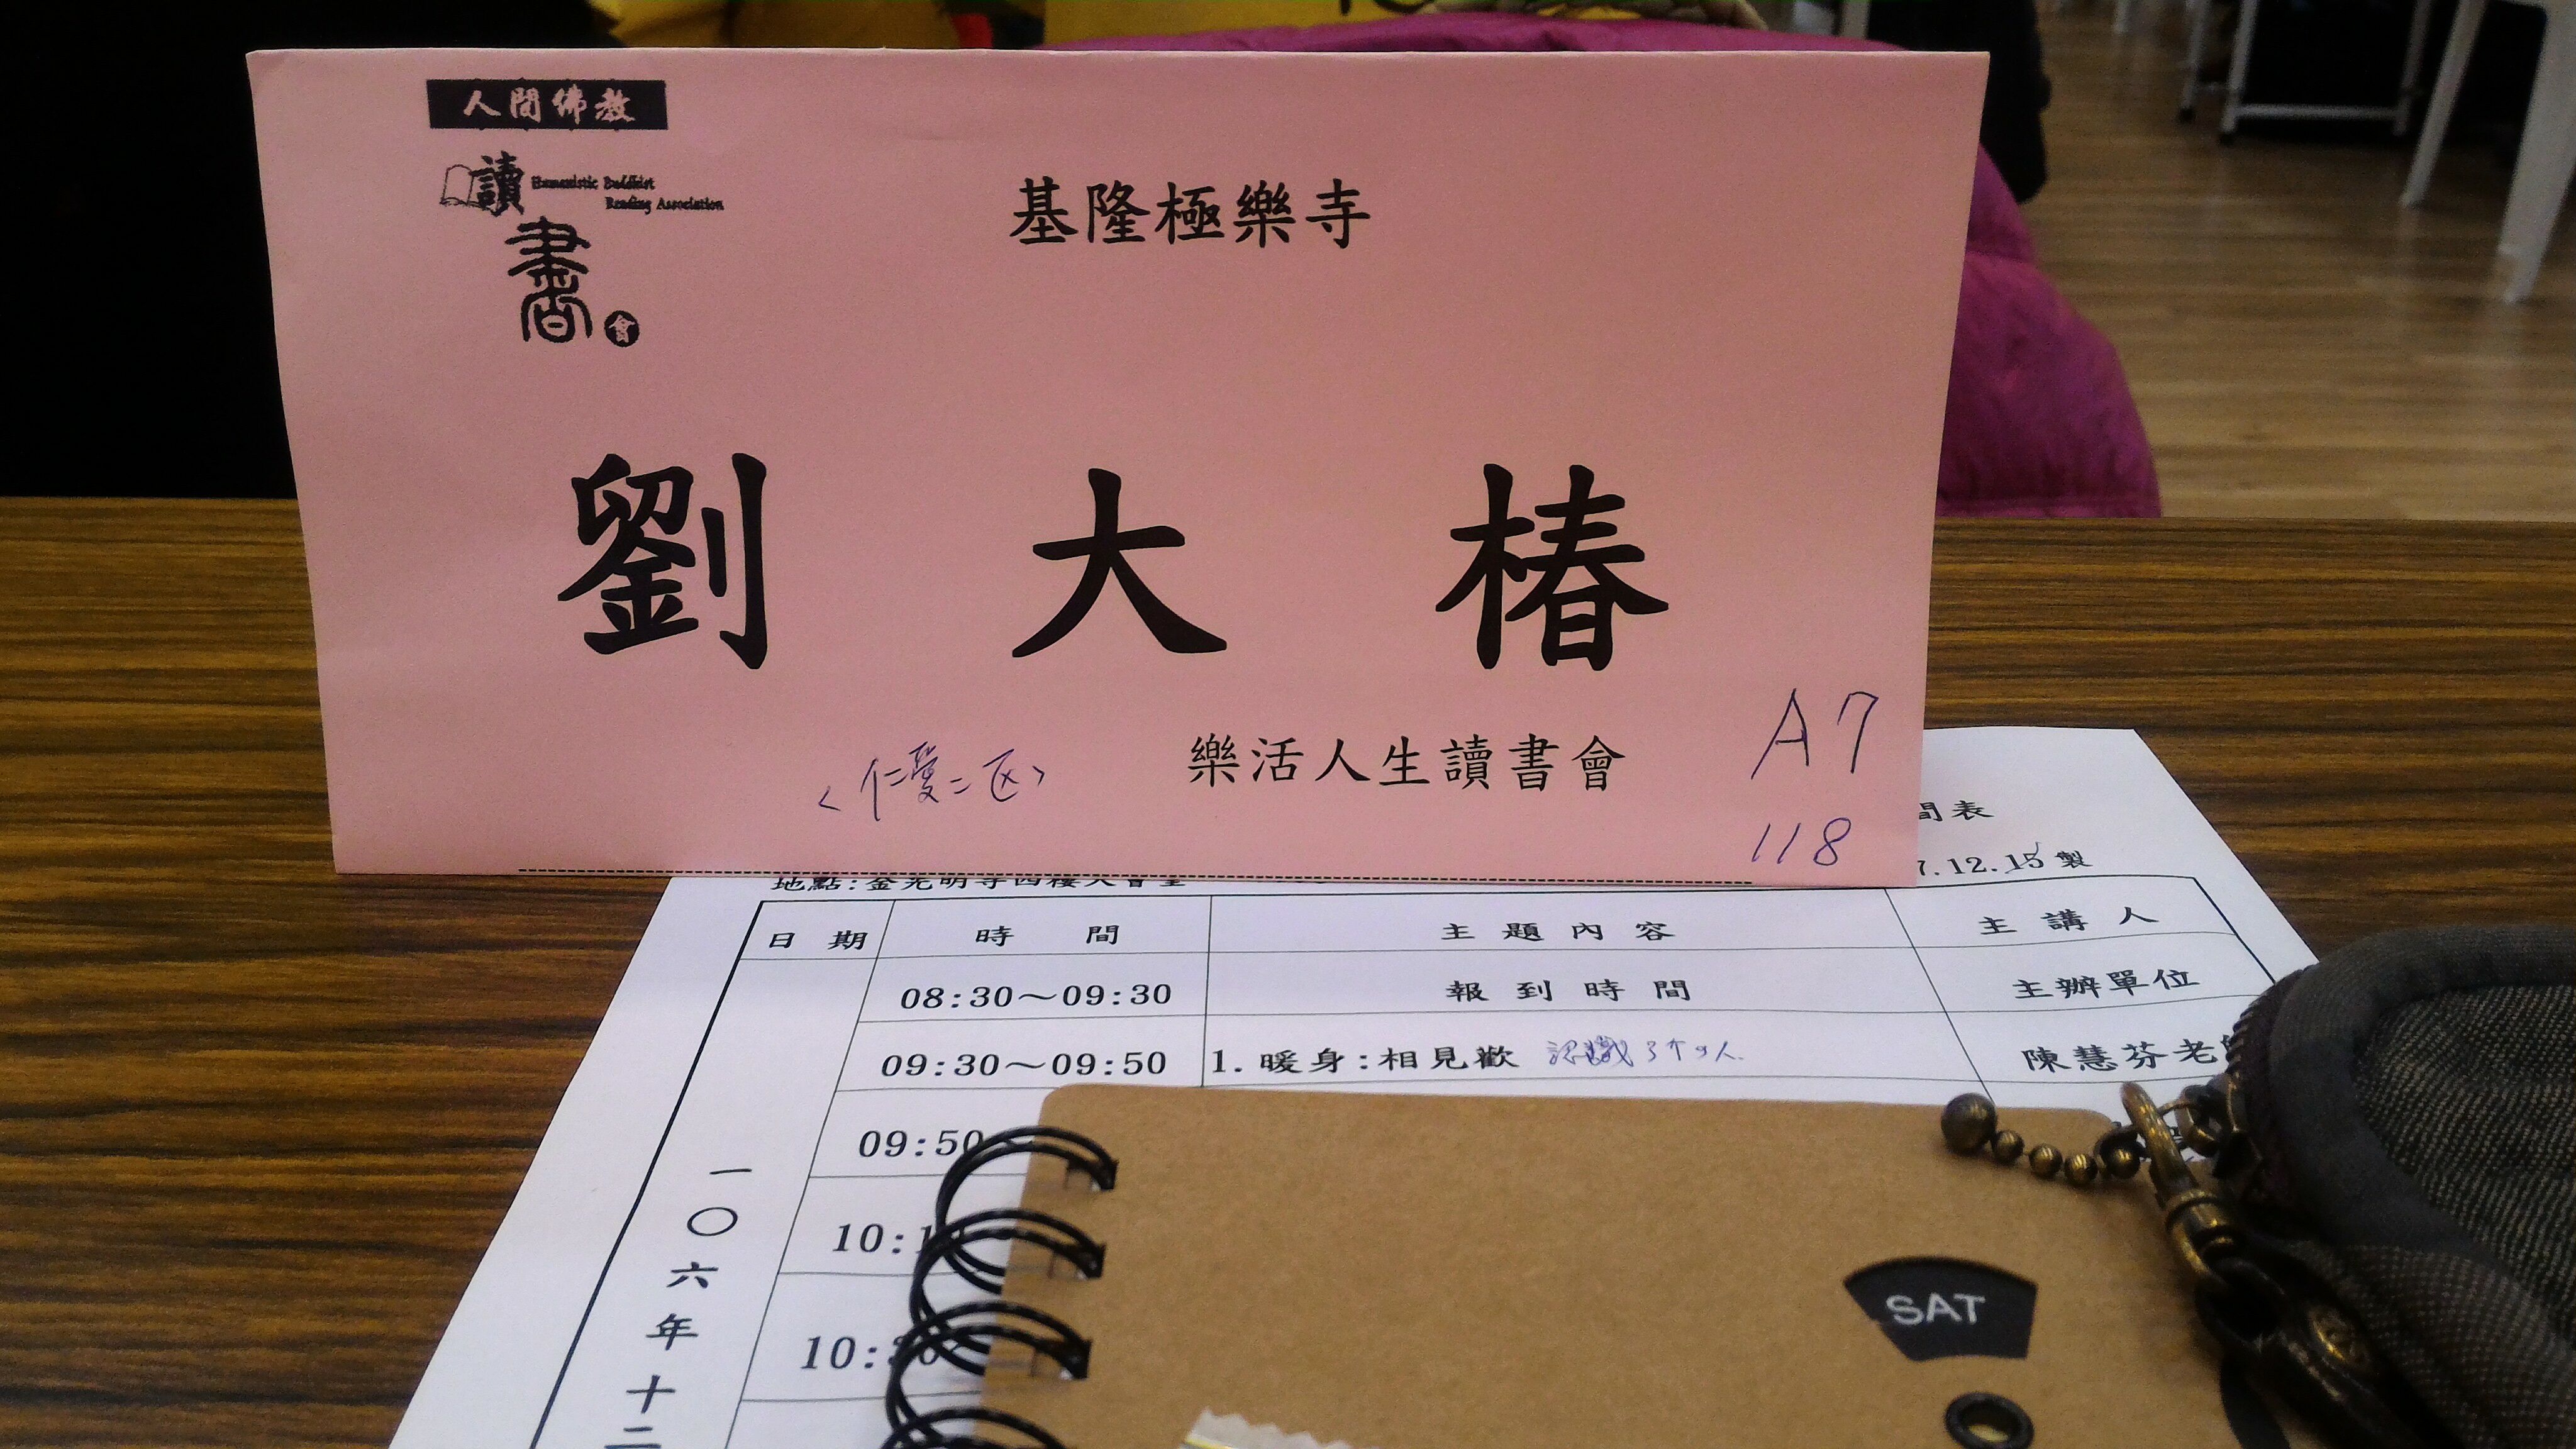 人間佛教
讀 Humanistic Buddhist
Reading Association
書會
基隆極樂寺
劉大椿
<仁愛二区>
樂活人生讀書會
A7
118
間表
7.12.15製
地點:金光明寺四樓大會堂
日期 時間 主題內容 主講人
08:30~09:30 報到時間 主辦單位
09:30~09:50 1.暖身:相見歡 認識3个人 陳慧芬老師
09:50~
10:1
10:30
一〇六年十二
SAT